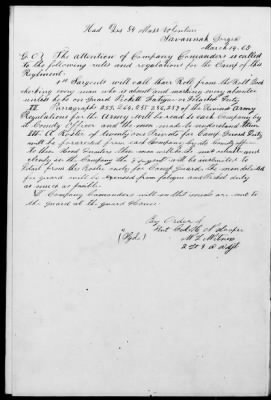 Head Qrs 54 Mass Vol Inf
Savannah Georgia
March 14. 65
G.O. The attention of Company Comanders is called
to the following rules and regulations for the Camp of this
Regiment.
1st Sargents will call their Roll from the Roll Book
checking every man who is absent and marking every absentee
unless he be on Guard Picket Fatigue or Detached Duty
II Paragraphs 253, 254, 255 256, 257 of the Revised Army
Regulations for the Army will be read to each Company by
Officer and the men made to understand them
III. A Roster of twenty one Privates for Camp Guard Duty
will be forwarded from each Company by its Comdg officer
To these Head Quarters
the Company the 1st Sergeant will be instructed to
Detail from this Roster only for Camp Guard. The men detailed
for guard will be excused from fatigue and Picket duty
as much as possible
Company Comanders will see that meals are sent to
the guard at the guard House.
By Order of
Lieut Col H. N. Hooper
(Sgd.)